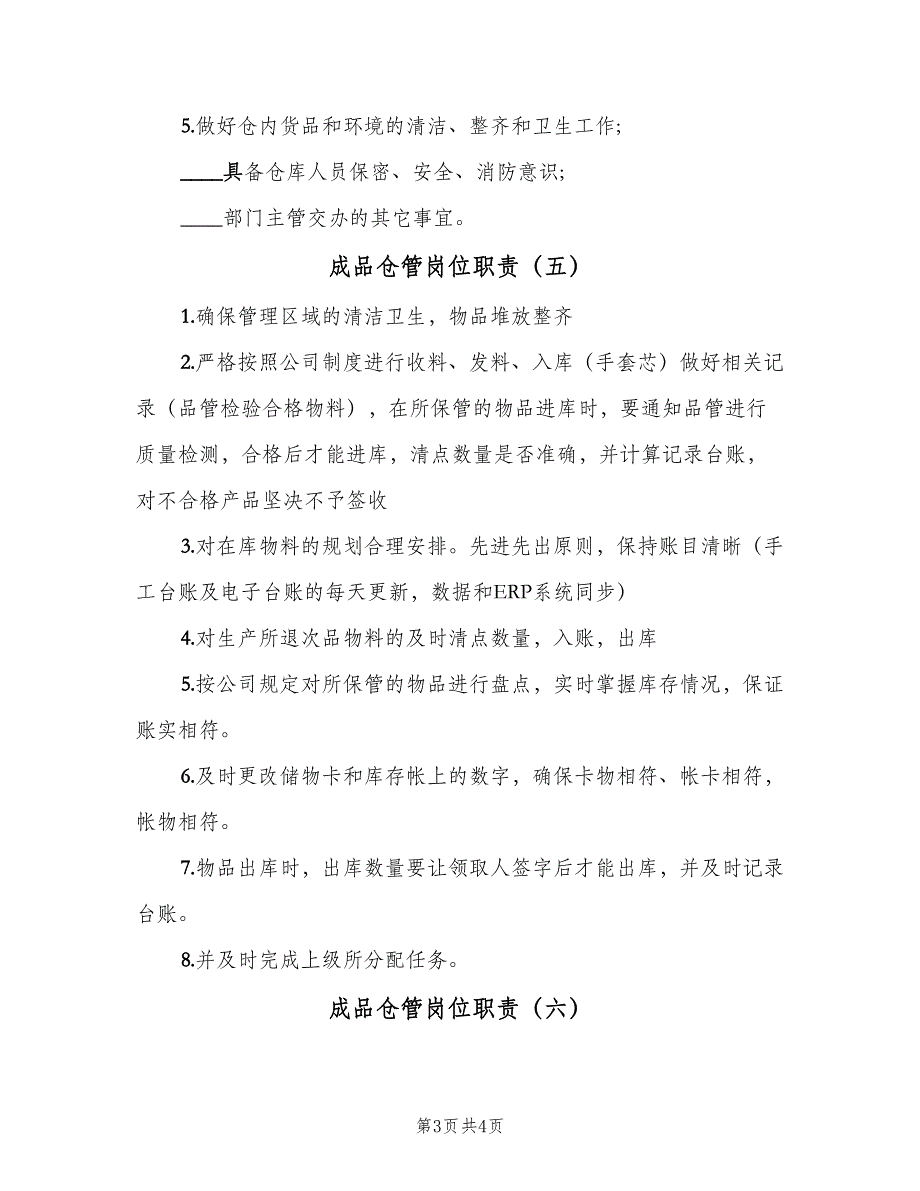 5.做好仓内货品和环境的清洁、整齐和卫生工作;
____具备仓库人员保密、安全、消防意识;
____部门主管交办的其它事宜。
成品仓管岗位职责（五）
1.确保管理区域的清洁卫生，物品堆放整齐
2.严格按照公司制度进行收料、发料、入库（手套芯）做好相关记
录（品管检验合格物料），在所保管的物品进库时，要通知品管进行
质量检测，合格后才能进库，清点数量是否准确，并计算记录台账，
对不合格产品坚决不予签收
3.对在库物料的规划合理安排。先进先出原则，保持账目清晰（手
工台账及电子台账的每天更新，数据和ERP系统同步）
4.对生产所退次品物料的及时清点数量，入账，出库
5.按公司规定对所保管的物品进行盘点，实时掌握库存情况，保证
账实相符。
6.及时更改储物卡和库存帐上的数字，确保卡物相符、帐卡相符，
帐物相符。
7.物品出库时，出库数量要让领取人签字后才能出库，并及时记录
台账。
8.并及时完成上级所分配任务。
成品仓管岗位职责（六）
第3页 共4页